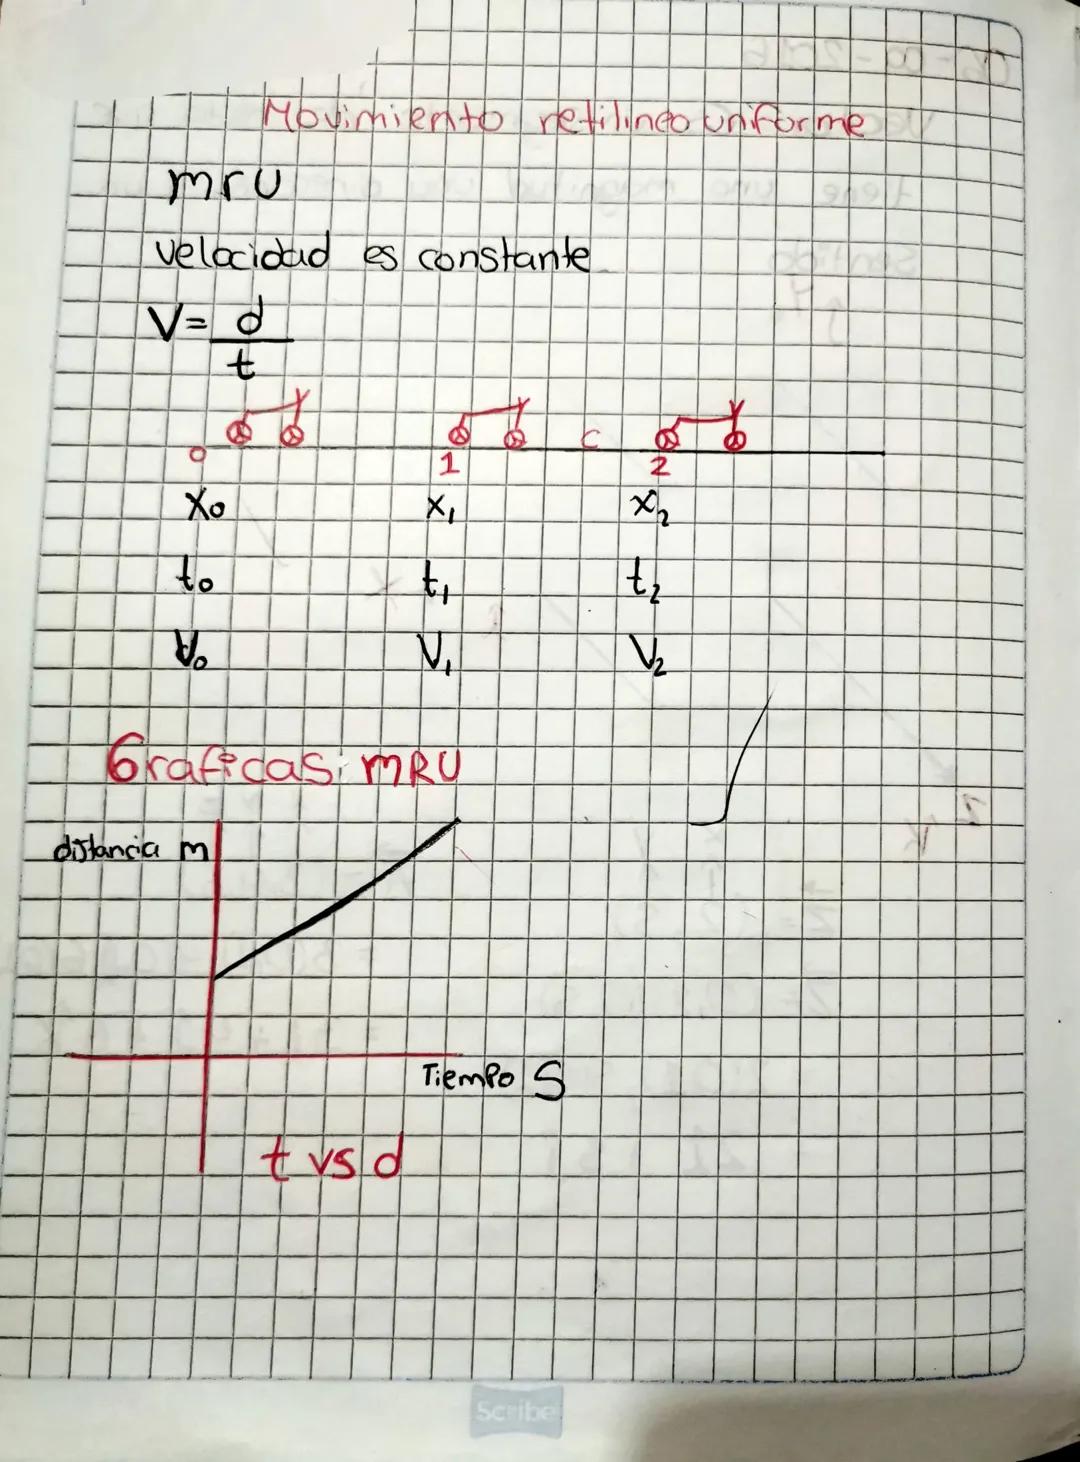 Movimiento retilineo uniforme
mru
velocidad es constante
V= d
t
0 1 C 2
x₀ x₁ x₂
t₀ t₁ t₂
V₀ V₁ V₂
Graficas: MRU
distancia m
Tiempo S
t vs d
Scribe